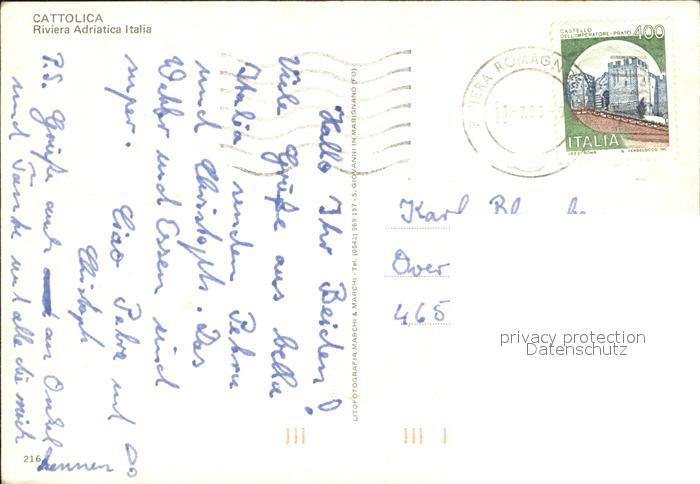 CATTOLICA
Riviera Adriatica Italia
Hallo Ihr Beiden!
Viele Grüße aus bella
Italia senden Petra
und Christoph. Das
Wetter und Essen sind
super.
Ciao Petra und
Christoph
P.S. Grüße auch an Onkel
und Tante und alle die mich
kennen
216
LITOFOTOGRAFIA MARCHI & MARCHI - Tel. (0541) 965 157 - S. GIOVANNI IN MARIGNANO (FO)
RIVIERA ROMAGN
CASTELLO
DELL'IMPERATORE - PRATO
400
ITALIA
Karl
Over
465
privacy protection
Datenschutz